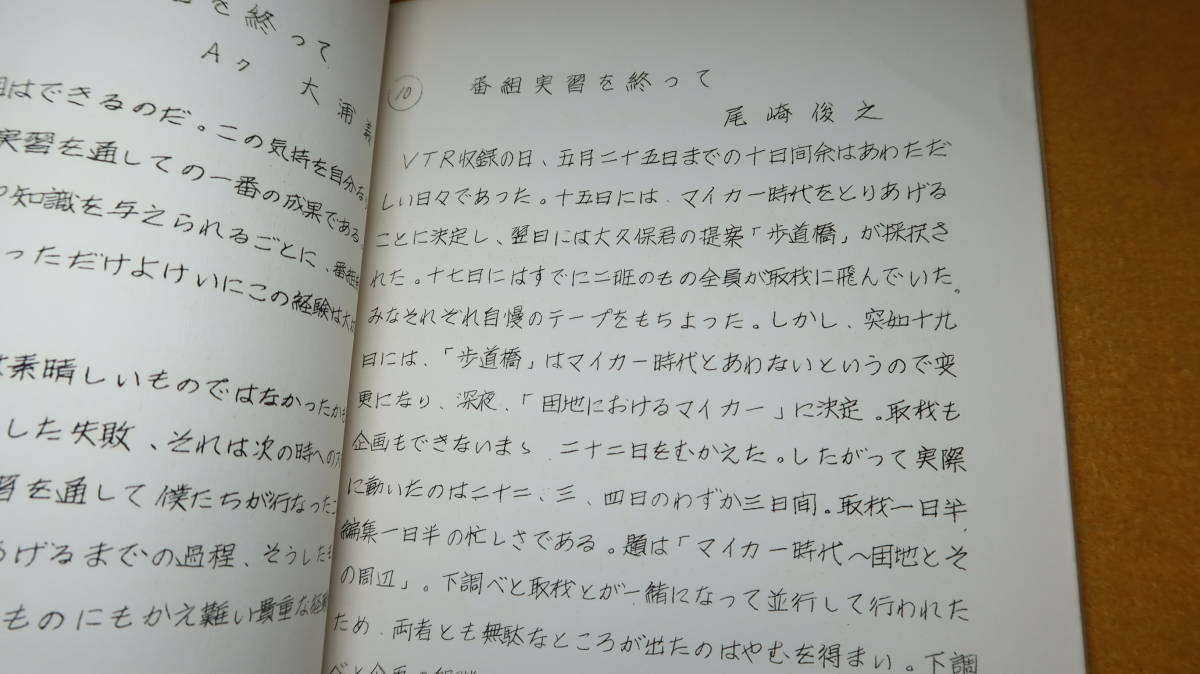 を終って
Aク 大浦
組はできるのだ。この気持を自分な
実習を通しての一番の成果である
知識を与えられるごとに、番組
っただけよけいにこの経験は大
は素晴しいものではなかったかも
した失敗、それは次の時への
習を通して僕たちが行なったこ
あげるまでの過程、そうした
ものにもかえ難い貴重な経験
10 番組実習を終って
尾崎俊之
VTR収録の日、五月二十五日までの十日間余はあわただ
しい日々であった。十五日には、マイカー時代をとりあげる
ことに決定し、翌日には大久保君の提案「歩道橋」が採択さ
れた。十七日にはすでに二班のもの全員が取材に飛んでいた。
みなそれぞれ自慢のテープをもちよった。しかし、突如十九
日には、「歩道橋」はマイカー時代とあわないというので変
更になり、深夜、「団地におけるマイカー」に決定。取材も
企画もできないまゝ 二十二日をむかえた。したがって実際
に動いたのは二十二、三、四日のわずか三日間。取材一日半、
編集一日半の忙しさである。題は「マイカー時代〜団地とそ
の周辺」。下調べと取材とが一緒になって並行して行われた
ため、両者とも無駄なところが出たのはやむを得まい。下調
べと企画の